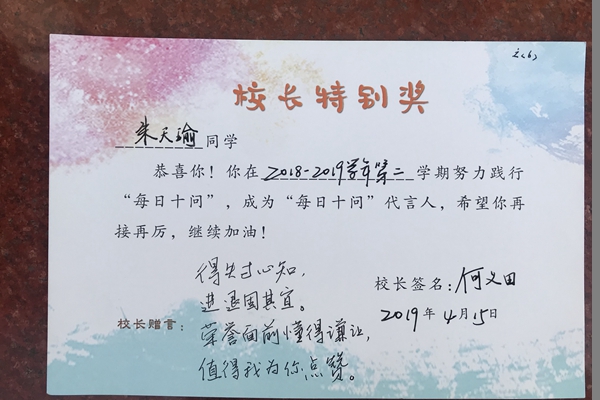 五(6)
校长特别奖
朱天瑜同学
恭喜你！你在2018-2019学年第二学期努力践行
“每日十问”，成为“每日十问”代言人，希望你再
接再厉，继续加油！
得失寸心知，
进退因其宜。
荣誉面前懂得谦让，
值得我为你点赞。
校长赠言：
校长签名：何义田
2019年4月15日